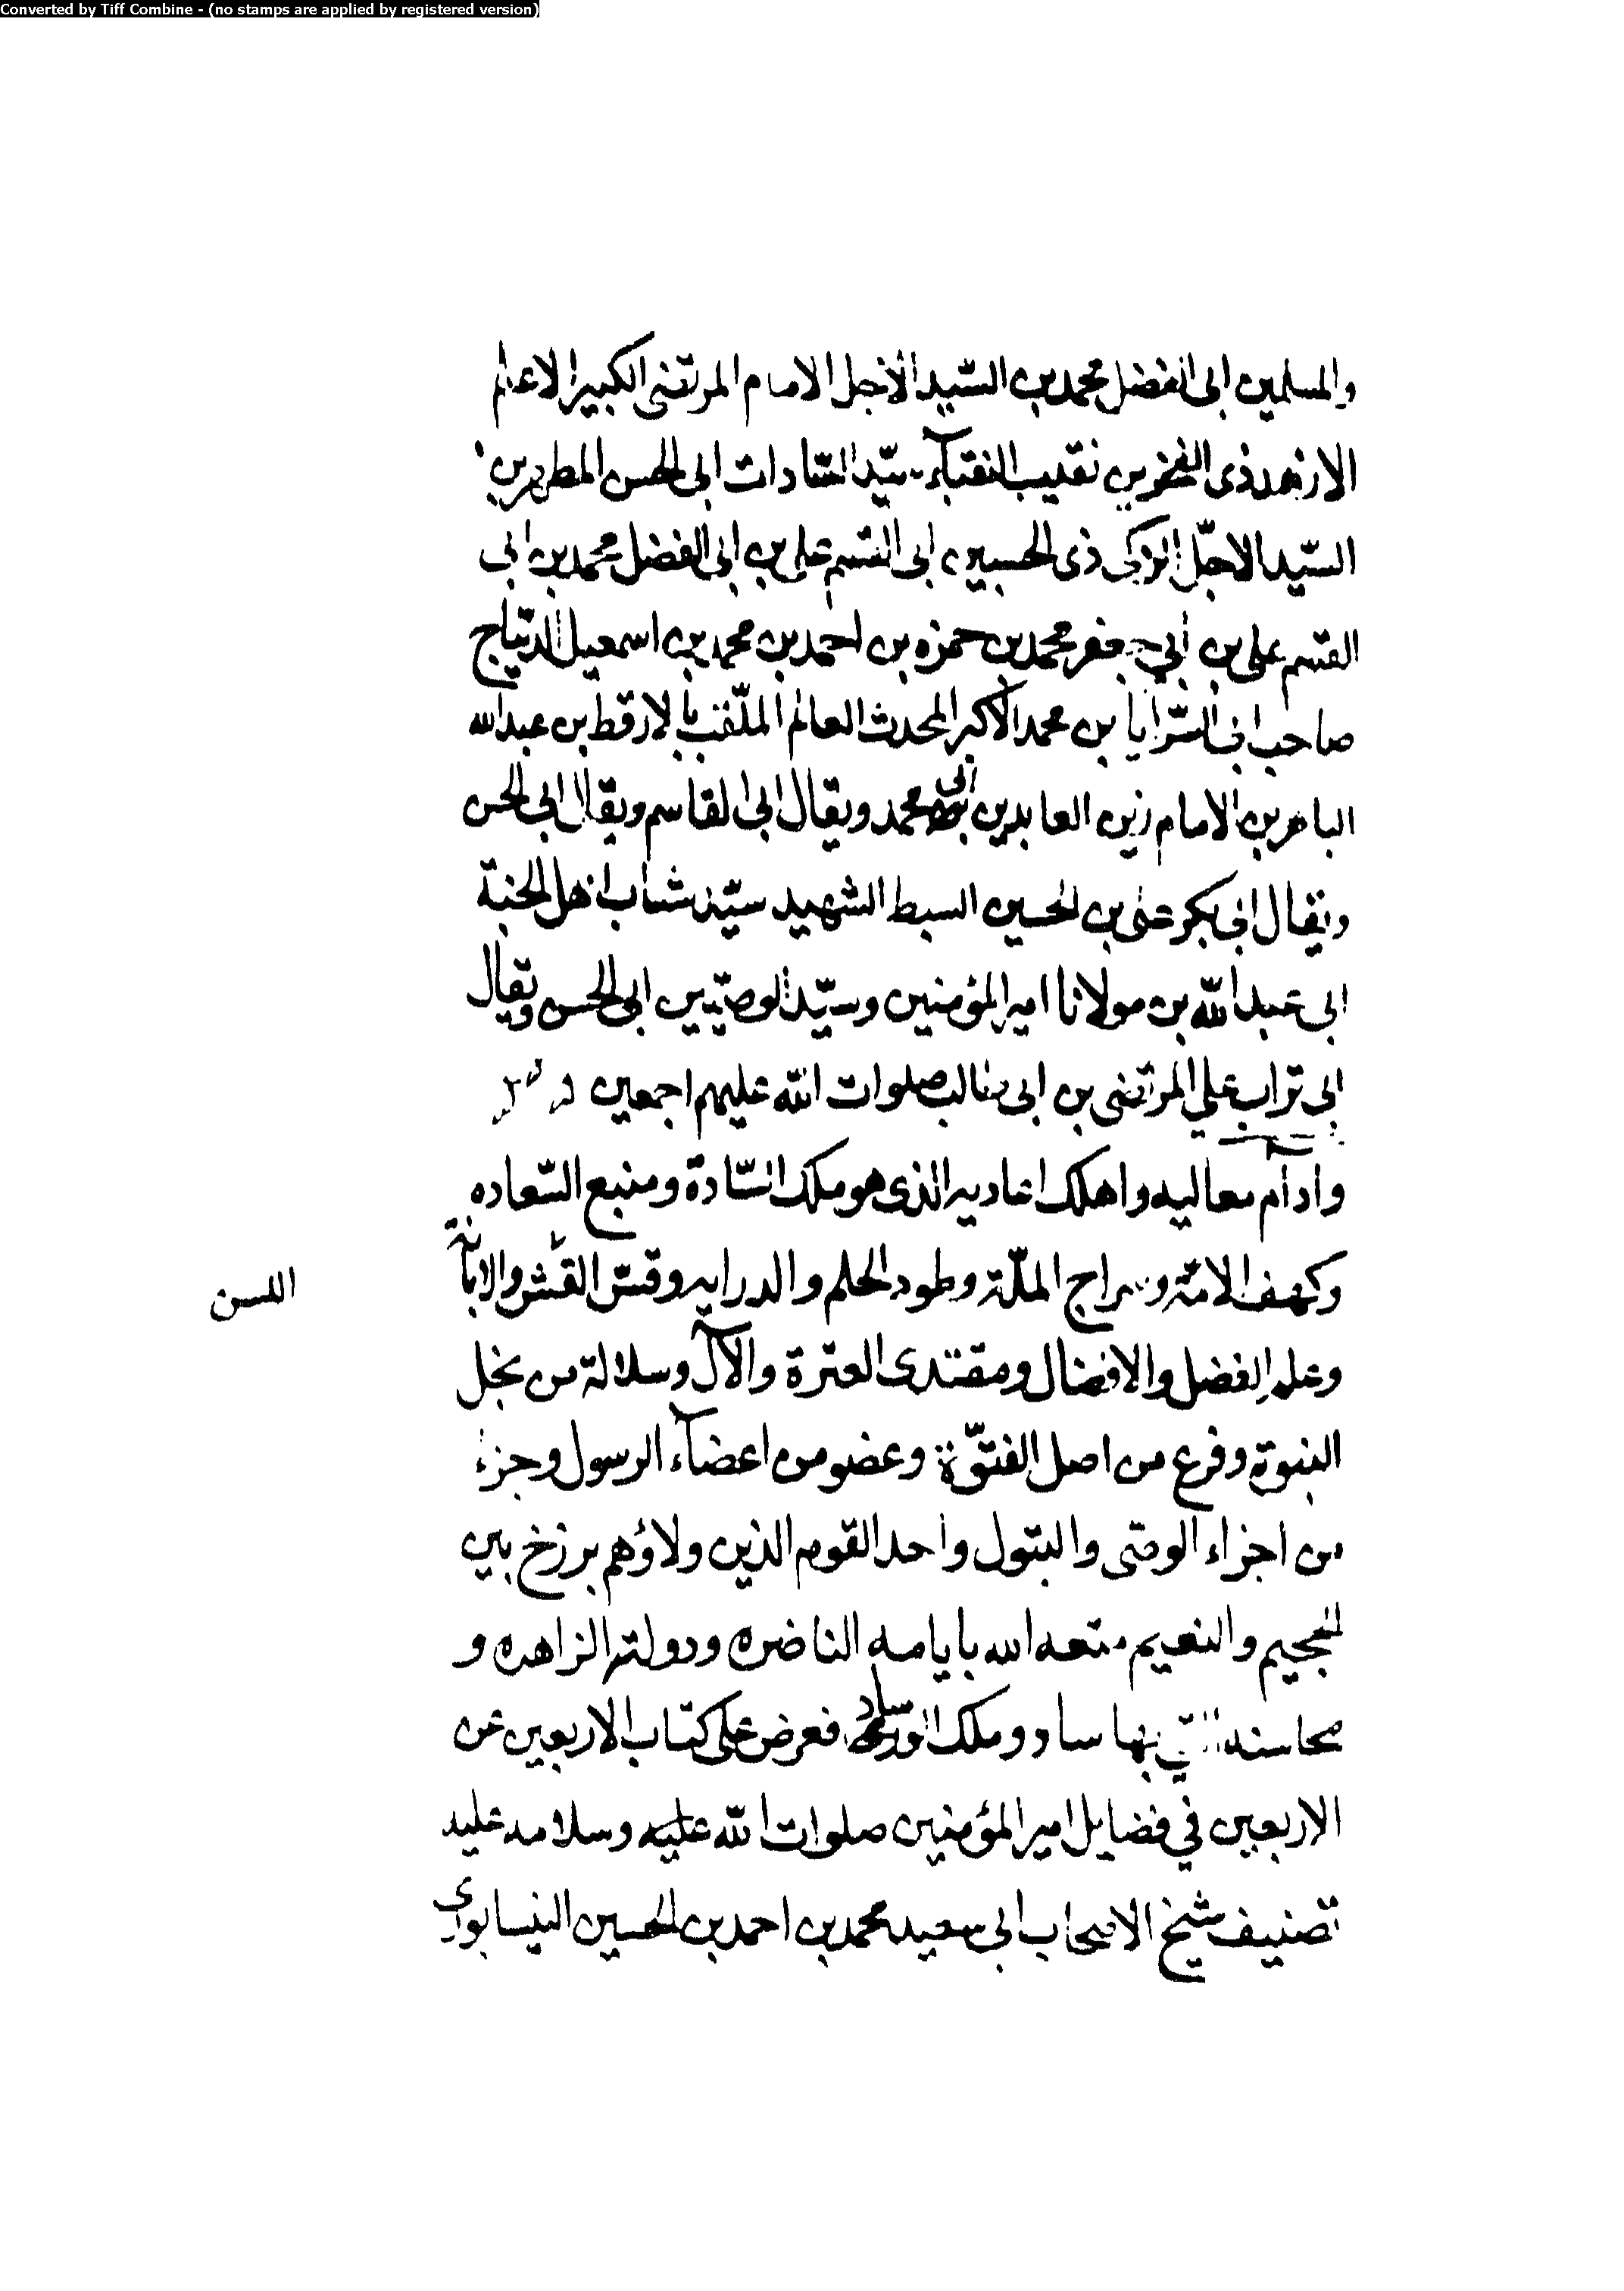 Converted by Tiff Combine - (no stamps are applied by registered version)
والمسلمين ابى الفضل محمد بن السّيد الاجل الامام المرتضى الكبير الاعلم
الازهد ذى الفخرين نقيب النقباء سيّد السّادات ابى الحسن المطهر بن
السّيد الاجلّ الزكى ذى الحسبين ابى القسم على بن ابى الفضل محمد بن ابى
القسم على بن ابي جعفر محمد بن حمزه بن احمد بن محمد بن اسمعيل الديّباج
صاحب ابى السّرايا بن محمد الاكبر المحدث العالم الملّقب بالارقط بن عبدالله
الباهر بن الامام زين العابدين ابى محمد ويقال ابى القاسم ويقال ابى الحسن
ويقال ابى بكر على بن الحسين السبط الشهيد سيّد شباب اهل الجنة
ابى عبد الله بن مولانا امير المؤمنين وسيّد الوصيّين ابى الحسن ويقال
ابى تراب علي المرتضى بن ابى طالب صلوات الله عليهم اجمعين
وادآم معاليه واهلك اعاديه الذى هو ملك السّادة ومنبع السّعاده
وكهف الامّة وسراج الملّة وطود الحلم والدرايه وقسّ القسّ والابانة
اللسن
وعلم الفضل والافضال ومقتدى العترة والآل وسلالة من نجل
النبوة وفرع من اصل الفتوّة وعضو من اعضآء الرسول وجزء
من اجزاء الوصّى والبتول واحد القوم الذين ولاؤهم برزخ بين
الجحيم والنعيم متعه الله بايامه الناضره ودولته الزاهره و
محاسنه التي بها ساد وملك فعرض على كتاب الاربعين عن
الاربعين في فضايل امير المؤمنين صلوات الله عليه وسلامه عليه
تصنيف شيخ الاصحاب ابى سعيد محمد بن احمد بن الحسين النيسابورى